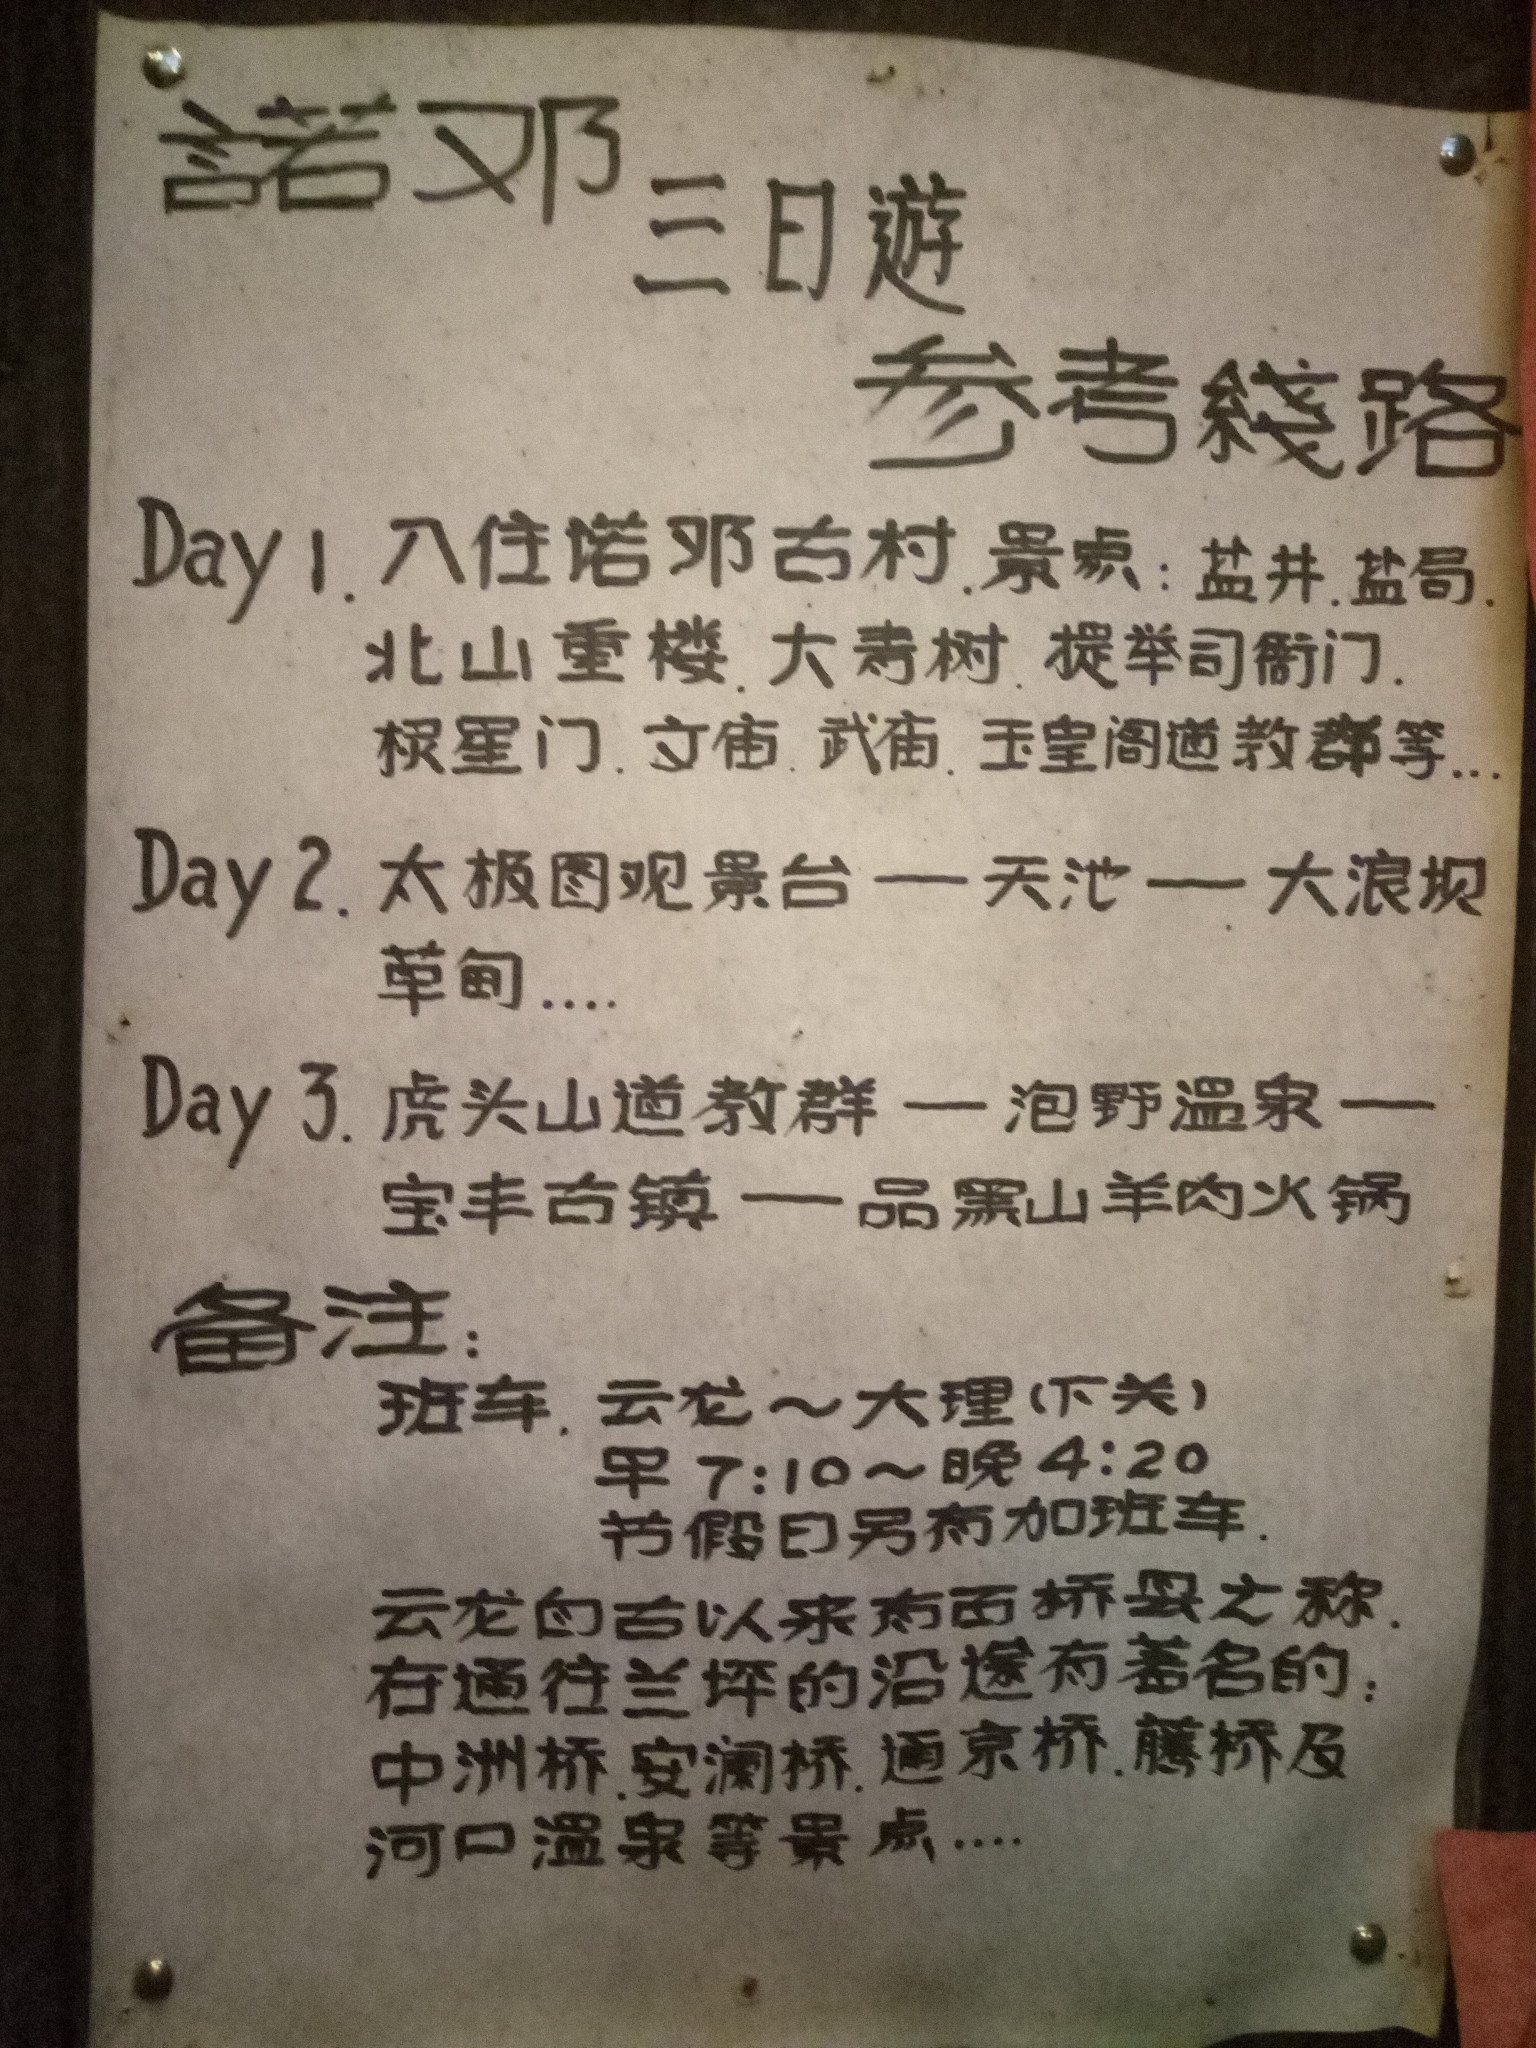 諾邓
三日遊
参考綫路
Day 1. 入住诺邓古村.景点:盐井.盐局.
北山重楼.大青树.提举司衙门.
棂星门.文庙.武庙.玉皇阁道教群等...
Day 2. 太极图观景台—天池—大浪坝
草甸....
Day 3. 虎头山道教群—泡野温泉—
宝丰古镇—品黑山羊肉火锅
备注:
班车. 云龙～大理(下关)
早7:10～晚4:20
节假日另有加班车.
云龙自古以来有古桥.之称.
在通往兰坪的沿途有著名的:
中洲桥.安澜桥.通京桥.藤桥及
河口温泉等景点....